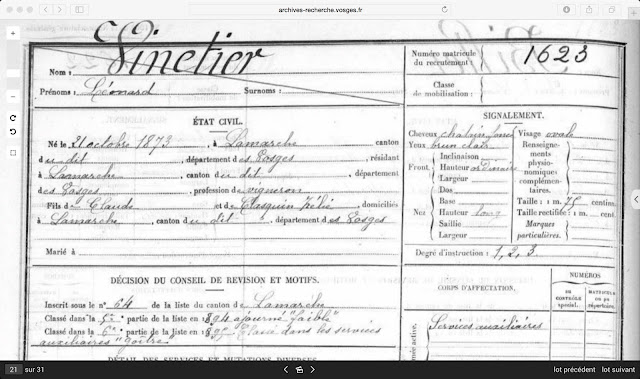 archives-recherche.vosges.fr
Vinetier
Nom :
Prénoms : Léonard Surnoms :
Numéro matricule du recrutement : 1623
Classe de mobilisation :
ÉTAT CIVIL.
Né le 21 octobre 1873, à Lamarche canton
du dit, département des Vosges, résidant
à Lamarche, canton du dit, département
des Vosges, profession de vigneron
Fils de Claude et de Casquin Zélie, domiciliés
à Lamarche, canton du dit, département des Vosges
Marié à
SIGNALEMENT.
Cheveux châtain foncé Visage ovale
Yeux brun clair
Front. Inclinaison
Hauteur ordinaire
Largeur
Nez Dos
Base
Hauteur long
Saillie
Largeur
Renseignements physionomiques complémentaires.
Taille : 1 m. 75 centim.
Taille rectifiée : 1 m. cent.
Marques particulières.
Degré d'instruction : 1, 2, 3.
DÉCISION DU CONSEIL DE REVISION ET MOTIFS.
Inscrit sous le n° 64 de la liste du canton de Lamarche
Classé dans la 5e partie de la liste en 1894 ajourné "faible"
Classé dans la 6e partie de la liste en 1895 Classé dans les services
auxiliaires "goitre"
DÉTAIL DES SERVICES ET MUTATIONS DIVERSES.
CORPS D'AFFECTATION.
NUMÉROS
DU CONTRÔLE spécial.
MATRICULE OU DU répertoire.
Services auxiliaires
née active.
21 sur 31
lot précédent lot suivant